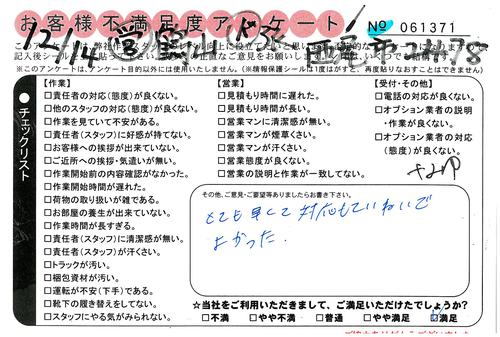 お客様不満足度アンケート
№ 061371
12/14
※このアンケートは、アンケート目的以外には使用いたしません。(※情報保護シールは1度はがすと、再度貼りなおすことはできません)
●チェックリスト
【作業】
□責任者の対応(態度)が良くない。
□他のスタッフの対応(態度)が良くない。
□作業を見ていて不安がある。
□責任者(スタッフ)に好感が持てない。
□お客様への挨拶が出来ていない。
□ご近所への挨拶・気遣いが無い。
□作業開始前の内容確認がなかった。
□作業開始時間が遅れた。
□荷物の取り扱いが雑である。
□お部屋の養生が出来ていない。
□作業時間が長すぎる。
□責任者(スタッフ)に清潔感が無い。
□責任者(スタッフ)が汗くさい。
□トラックが汚い。
□梱包資材が汚い。
□運転が不安(下手)である。
□靴下の履き替えをしてない。
□スタッフにやる気がみられない。
【営業】
□見積もり時間に遅れた。
□見積もり時間が長い。
□営業マンに清潔感が無い。
□営業マンが煙草くさい。
□営業マンが汗くさい。
□営業態度が良くない。
□営業の説明と作業が一致してない。
【受付・その他】
□電話の対応が良くない。
□オプション業者の説明
・作業が良くない。
□オプション業者の対応
(態度)が良くない。
その他、ご意見・ご要望等ありましたらお書き下さい。
とても早くて対応もていねいで
よかった.
☆当社をご利用いただきまして、ご満足いただけたでしょうか?
□不満 □やや不満 □普通 □やや満足 ☑満足